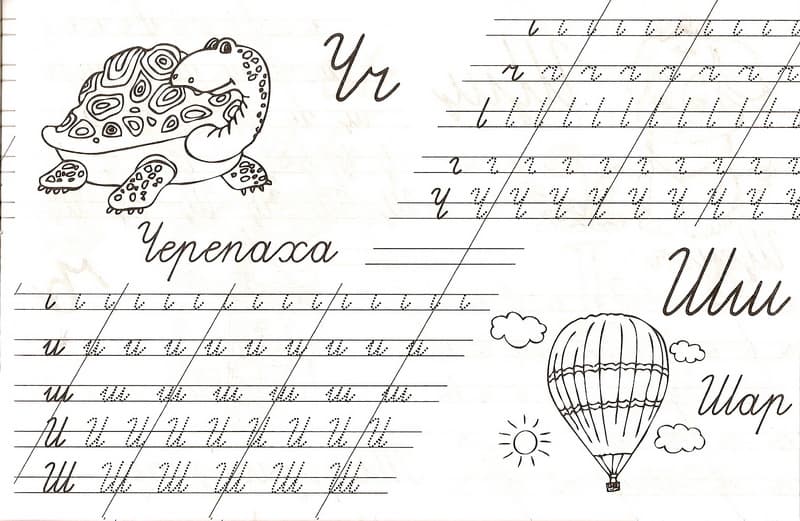 Чч
ч ч ч ч ч ч ч ч
Ч Ч Ч Ч Ч Ч Ч Ч Ч Ч
Черепаха
Шш
и и и и и и и и и и
ш ш ш ш ш ш ш
Шар
И И И И И И И И И
Ш Ш Ш Ш Ш Ш